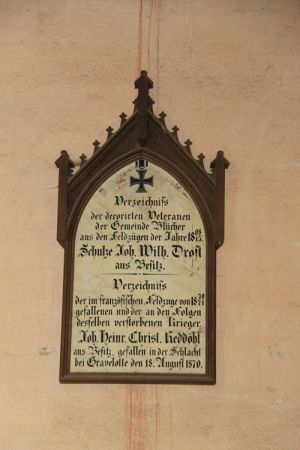 Verzeichniss
der decorirten Veteranen
der Gemeinde Blücher
aus den Feldzügen der Jahre 18
Schulze Joh. Wilh. Drost
aus Besitz.
Verzeichniss
der im französischen Feldzuge von 18 70/71
gefallenen und der an den Folgen
desselben verstorbenen Krieger.
Joh. Heinr. Christ. Reddöhl
aus Besitz, gefallen in der Schlacht
bei Gravelotte den 18. August 1870.